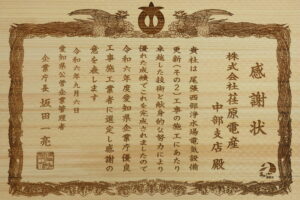 感謝状
株式会社荏原電産
中部支店 殿
貴社は尾張西部浄水場電気設備
更新(その2)工事の施工にあたり
卓越した技術と献身的な努力により
優れた成績でこれを完成されましたので
令和六年度愛知県企業庁優良
工事施工業者に選定し感謝の
意を表します
令和六年九月六日
愛知県公営企業管理者
企業庁長 坂田 亮